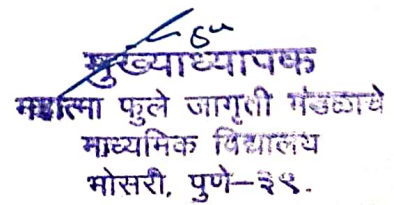 मुख्याध्यापक
महात्मा फुले जागृती मंडळाचे
माध्यमिक विद्यालय
भोसरी, पुणे–३९.